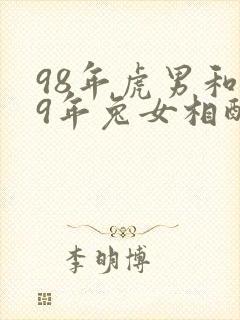 98年虎男和
9年兔女相配
李明博